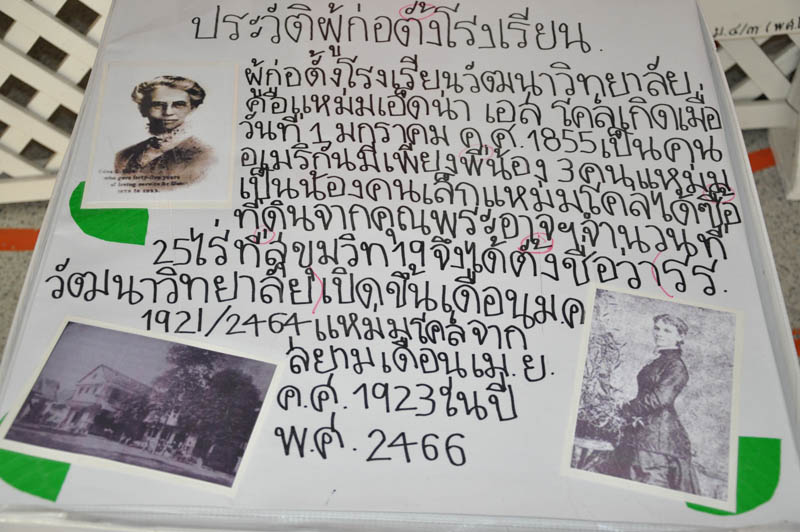 ประวัติผู้ก่อตั้งโรงเรียน.
ม.๔/๓ (พ.ศ.
ผู้ก่อตั้งโรงเรียนวัฒนาวิทยาลัย
คือแหม่มเอ็ดน่า เอส โคลเกิดเมื่อ
วันที่ 1 มกราคม ค.ศ.1855เป็นคน
อเมริกันมีเพียงพี่น้อง 3คนแหม่ม
เป็นน้องคนเล็กแหม่มโคลได้ซื้อ
ที่ดินจากคุณพระอาจฯจำนวนที่
25ไร่ที่สุขุมวิท19จึงได้ตั้งชื่อว่ารร.
วัฒนาวิทยาลัยเปิดขึ้นเดือนม.ค
1921/2464แหม่มโคลจาก
สยามเดือนเม.ย.
ค.ศ.1923ในปี
พ.ศ. 2466
who gave forty-five years
of loving service for
1878 to 1923.